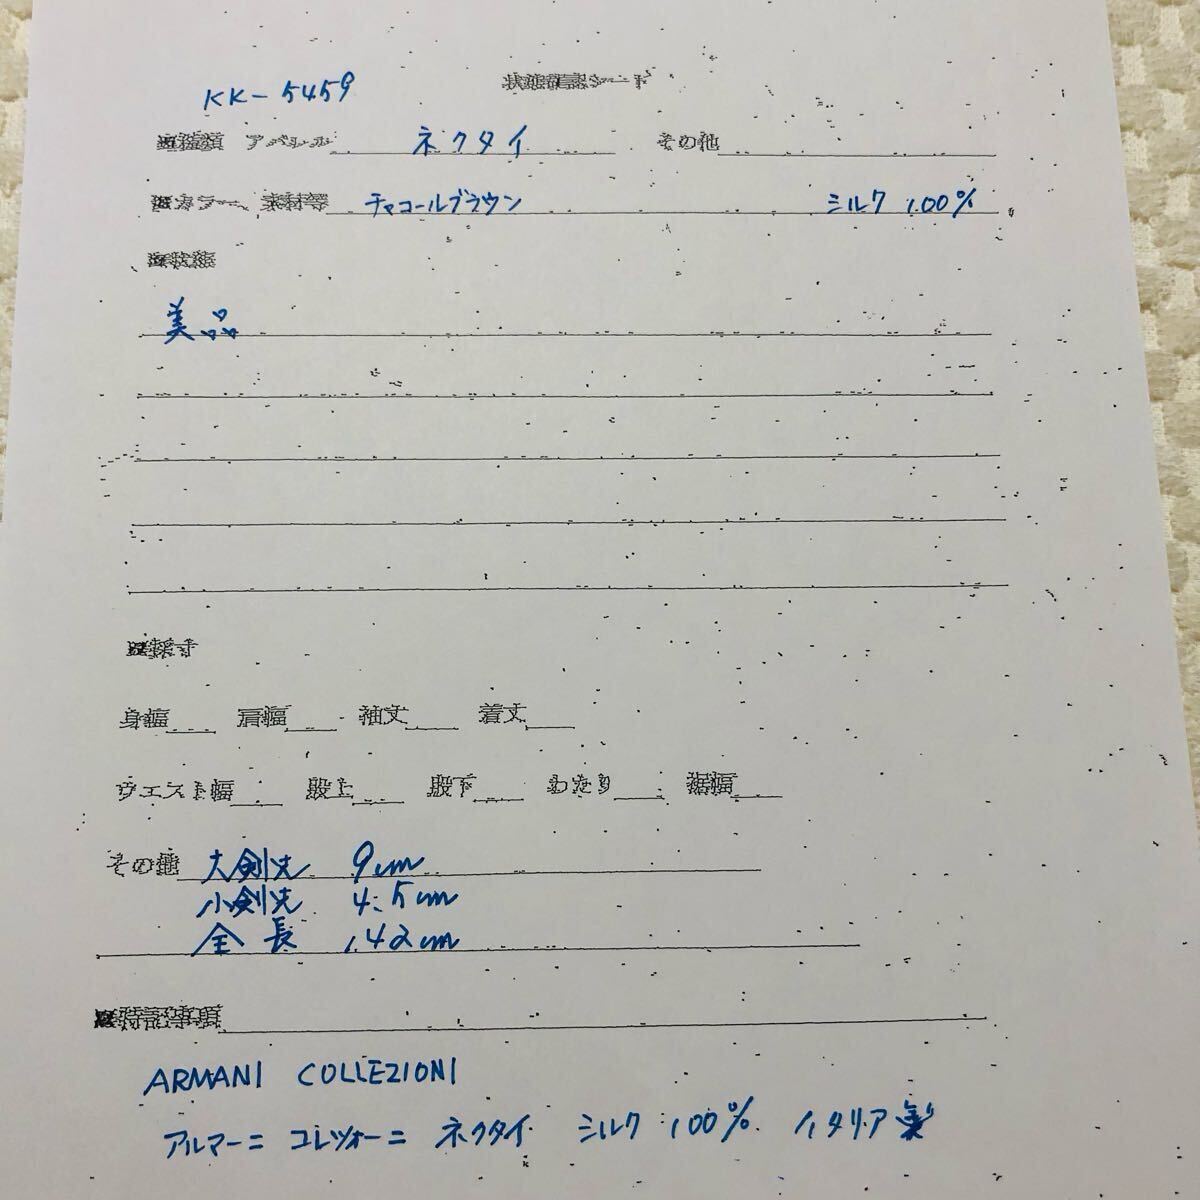 KK-5459
状態確認シート
種類 アパレル ネクタイ その他
カラー、素材等 チャコールブラウン シルク 100%
状態
美品
採寸
身幅 肩幅 袖丈 着丈
ウエスト幅 股上 股下 わたり 裾幅
その他 大剣先 9cm
小剣先 4.5cm
全長 142cm
特記事項
ARMANI COLLEZIONI
アルマーニ コレツォーニ ネクタイ シルク 100% イタリア製